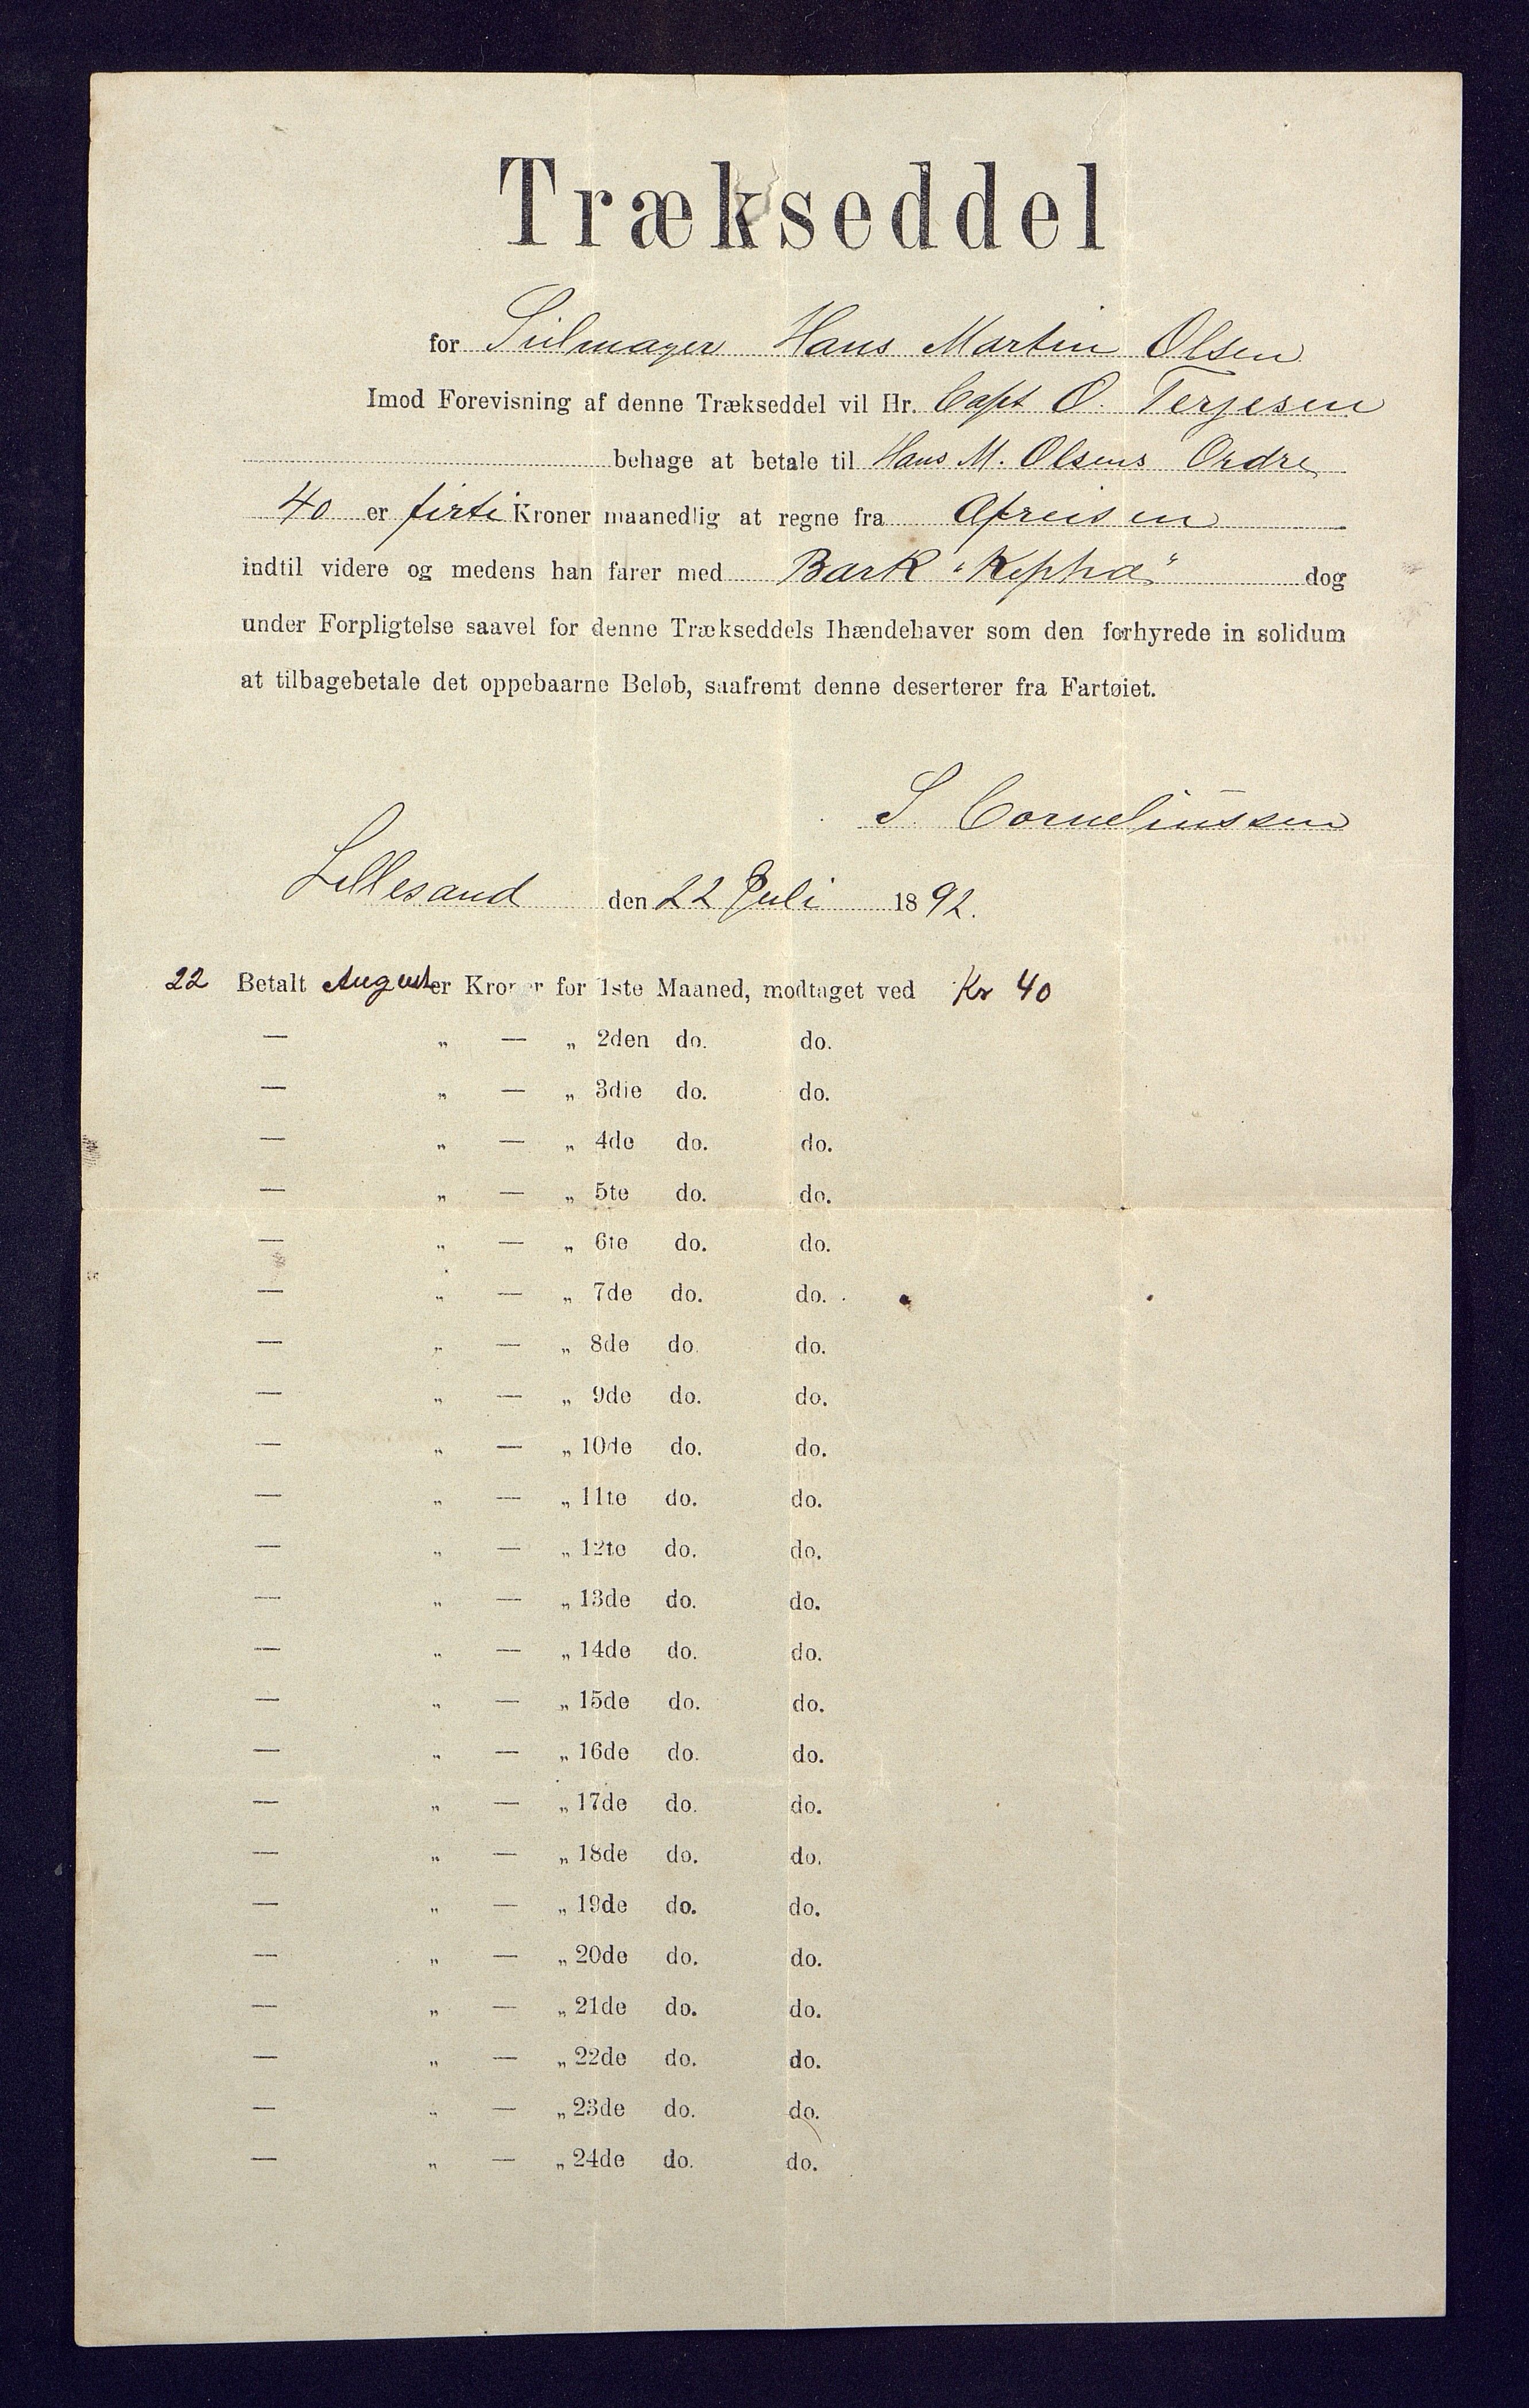 Trækseddel
for Seilmager Hans Martin Olsen
Imod Forevisning af denne Trækseddel vil Hr. Capt O. Terjesen
behage at betale til Hans M. Olsens Ordre
40 er firti Kroner maanedlig at regne fra Afreisen
indtil videre og medens han farer med Bark "Kepha" dog
under Forpligtelse saavel for denne Trækseddels Ihændehaver som den forhyrede in solidum
at tilbagebetale det oppebaarne Beløb, saafremt denne deserterer fra Fartøiet.
S. Corneliussen
Lillesand den 22 Juli 1892.
22 Betalt August er Kroner for 1ste Maaned, modtaget ved Kr 40
— „ — „ 2den do. do.
— „ — „ 3die do. do.
— „ — „ 4de do. do.
— „ — „ 5te do. do.
— „ — „ 6te do. do.
— „ — „ 7de do. do.
— „ — „ 8de do. do.
— „ — „ 9de do. do.
— „ — „ 10de do. do.
— „ — „ 11te do. do.
— „ — „ 12te do. do.
— „ — „ 13de do. do.
— „ — „ 14de do. do.
— „ — „ 15de do. do.
— „ — „ 16de do. do.
— „ — „ 17de do. do.
— „ — „ 18de do. do.
— „ — „ 19de do. do.
— „ — „ 20de do. do.
— „ — „ 21de do. do.
— „ — „ 22de do. do.
— „ — „ 23de do. do.
— „ — „ 24de do. do.